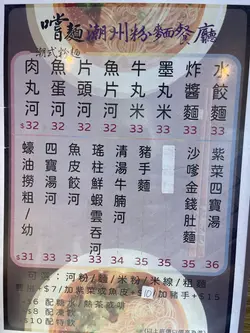 嚐麵潮州粉麵餐廳
潮式粉麵
肉丸河 $32
魚蛋河 32
片頭河 32
魚片河 32
牛丸米 33
墨丸米 33
炸醬麵 33
水餃麵 33
蠔油撈粗/幼 $31
四寶河 33
魚皮餃河 33
瑤柱鮮蝦雲吞河 33
清湯牛腩河 34
豬手麵 34
35
沙嗲金錢肚麵 35
紫菜四寶湯 36
河粉/麵/米粉/米線/粗麵
+$7/加紫菜或魚皮+$10/加豬手+$15
$6 配糖水/熱茶或啡
$8 配凍飲
$10 配特飲